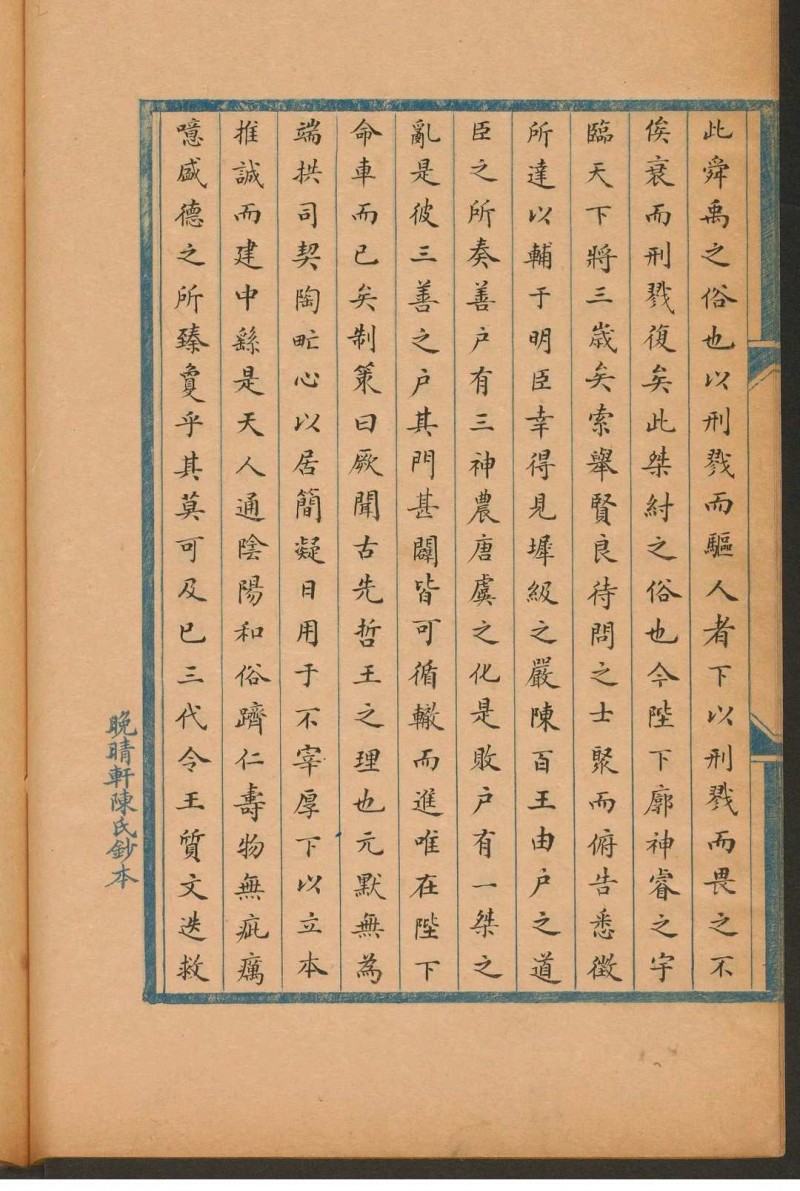 此舜禹之俗也以刑戮而驅人者下以刑戮而畏之不
俟衰而刑戮復矣此桀紂之俗也今陛下廓神睿之宇
臨天下將三歲矣索舉賢良待問之士聚而俯告悉徵
所達以輔于明臣幸得見墀級之嚴陳百王由户之道
臣之所奏善户有三神農唐虞之化是敗户有一桀之
亂是彼三善之户其門甚闢皆可循轍而進唯在陛下
命車而已矣制策曰厥聞古先哲王之理也元默無為
端拱司契陶甿心以居簡凝日用于不宰厚下以立本
推誠而建中繇是天人通陰陽和俗躋仁壽物無疵癘
噫盛德之所臻敻乎其莫可及已三代令王質文迭救
晚晴軒陳氏鈔本